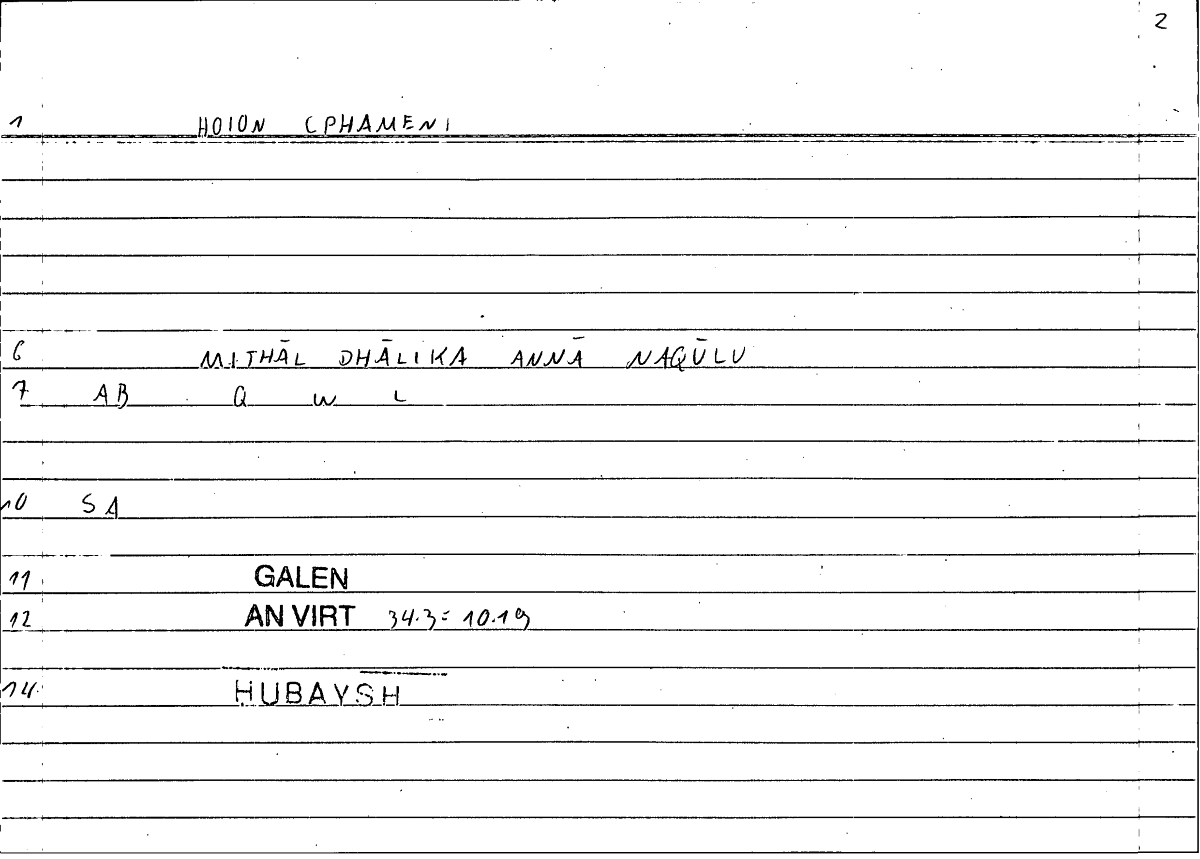 2
1 HOION (PHAMEN 1
6 MITHĀL DHĀLIKA ANNĀ NAQŪLU
7 AB Q W L
10 SA
11 GALEN
12 AN VIRT 34.3 = 10.19
14 ḤUBAYSH